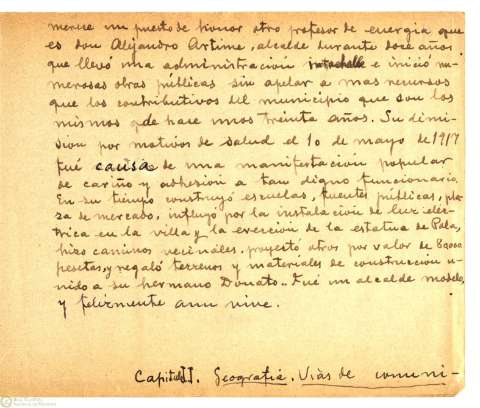 merece un puesto de honor otro profesor de energía que
es don Alejandro Artime, alcalde durante doce años
que llevó una administración intachable e inició nu-
merosas obras públicas sin apelar a mas recursos
que los contributivos del municipio que son los
mismos que de hace unos treinta años. Su dimi-
sion por motivos de salud el 1º de mayo de 1917
fué causa de una manifestación popular
de cariño y adhesión a tan digno funcionario.
En su tiempo construyó escuelas, fuentes públicas, pla-
za de mercado, influyó por la instalación de luz eléc-
trica en la villa y la erección de la estatua de Pola,
hizo caminos vecinales, proyectó otros por valor de 80000
pesetas, y regaló terrenos y materiales de construcción u-
nido a su hermano Donato.. Fué un alcalde modelo,
y felizmente aun vive.
Capitulo II. Geografía. Vías de comuni-